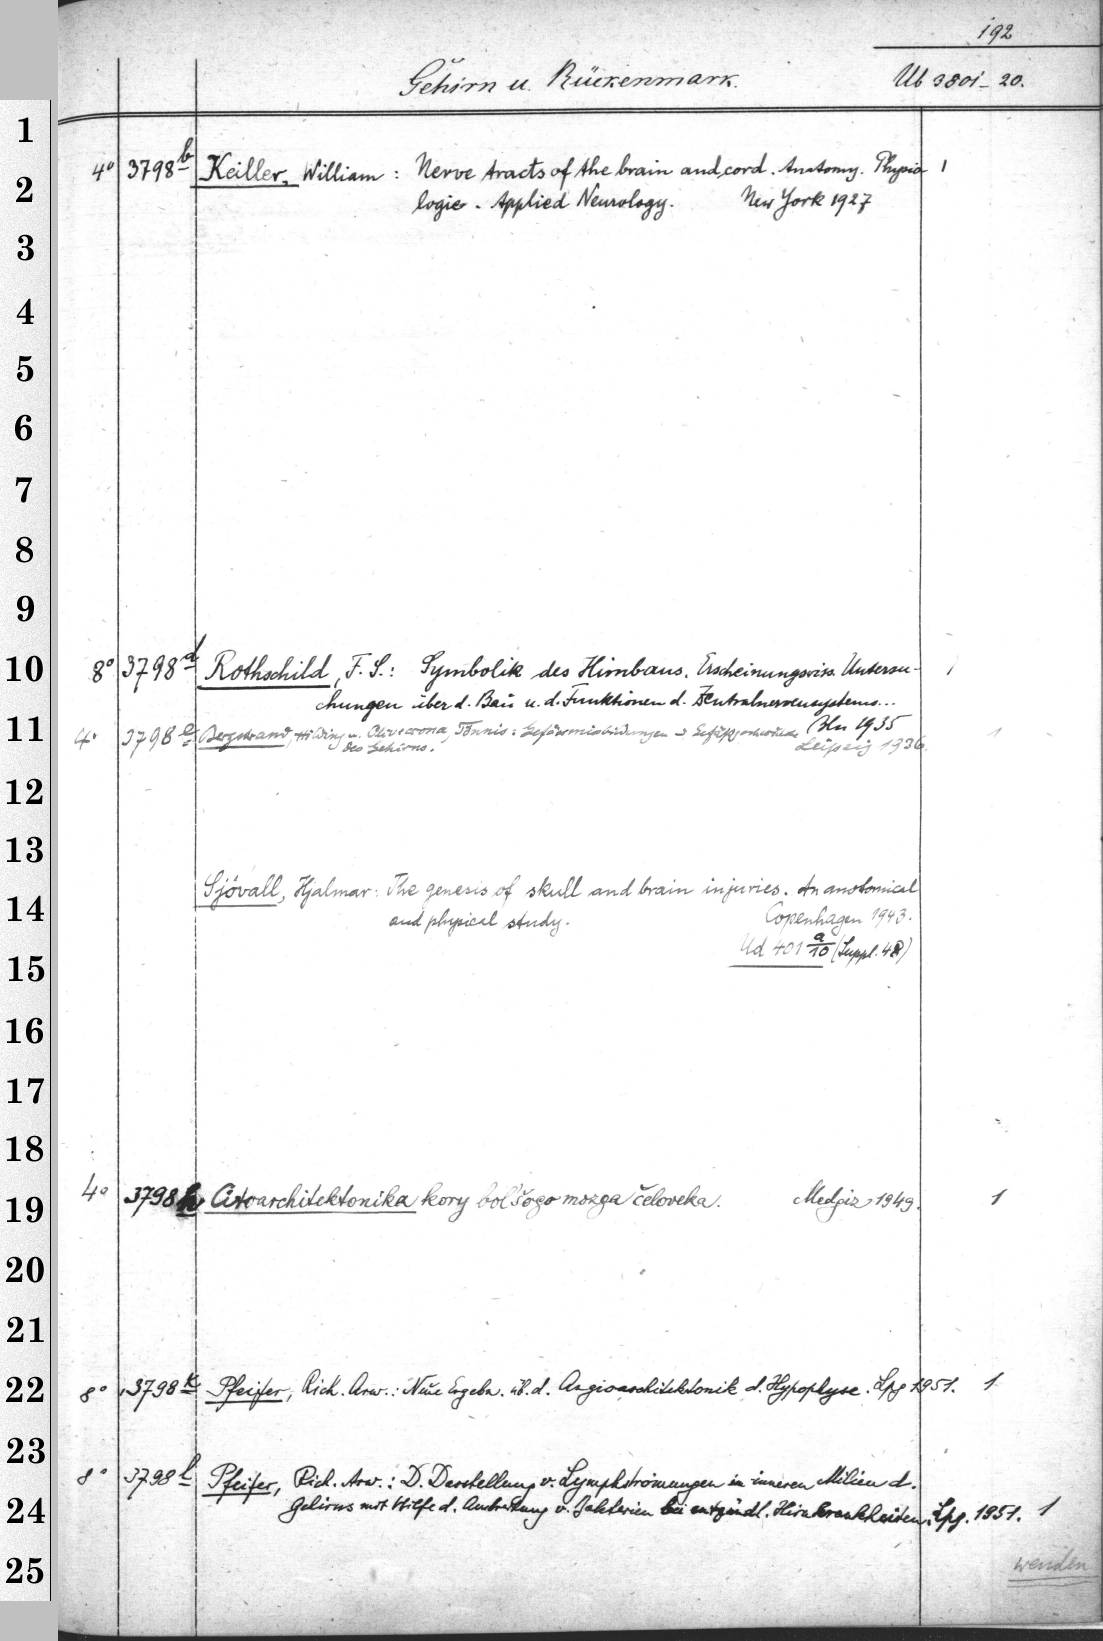 192
Gehirn u. Rückenmark. Ub 3801-20.
1
4° 3798 b Keiller, William: Nerve tracts of the brain and cord. Anatomy. Physio 1
2
logie. Applied Neurology. New York 1927
3
4
5
6
7
8
9
10
8° 3798 d Rothschild, F. S.: Symbolik des Hirnbaus. Erscheinungswiss. Untersu- 1
chungen über d. Bau u. d. Funktionen d. Zentralnervensystems...
Bln 1935
11
4° 3798 e Bergstrand, Hilding u. Olivecrona, Tönnis: Gefässmissbildungen u. Gefäßgeschwülste 1
des Gehirns. Leipzig 1936.
12
13
Sjövall, Hjalmar: The genesis of skull and brain injuries. An anatomical
14
and physical study. Copenhagen 1943.
Ud 401 a/10 (Suppl. 48)
15
16
17
18
19
4° 3798 h Citoarchitektonika kory bol'šogo mozga čeloveka. Medgiz 1949. 1
20
21
22
8° 3798 k Pfeifer, Rich. Arw.: Neue Ergebn. üb. d. Angioarchitektonik d. Hypophyse. Lpg 1951. 1
23
8° 3798 l Pfeifer, Rich. Arw.: D. Darstellung v. Lymphströmungen im inneren Milieu d.
24
Gehirns mit Hilfe d. Ausbreitung v. Bakterien bei entzündl. Hirnkrankheiten. Lpg. 1951. 1
25
wenden